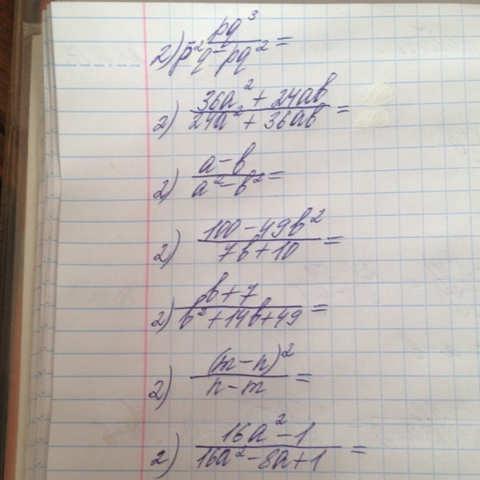 2) pq³ / p²q - pq² =
2) 36a² + 24ab / 24a² + 36ab =
2) a - b / a² - b² =
2) 100 - 49b² / 7b + 10 =
2) b + 7 / b² + 14b + 49 =
2) (m - n)² / n - m =
2) 16a² - 1 / 16a² - 8a + 1 =